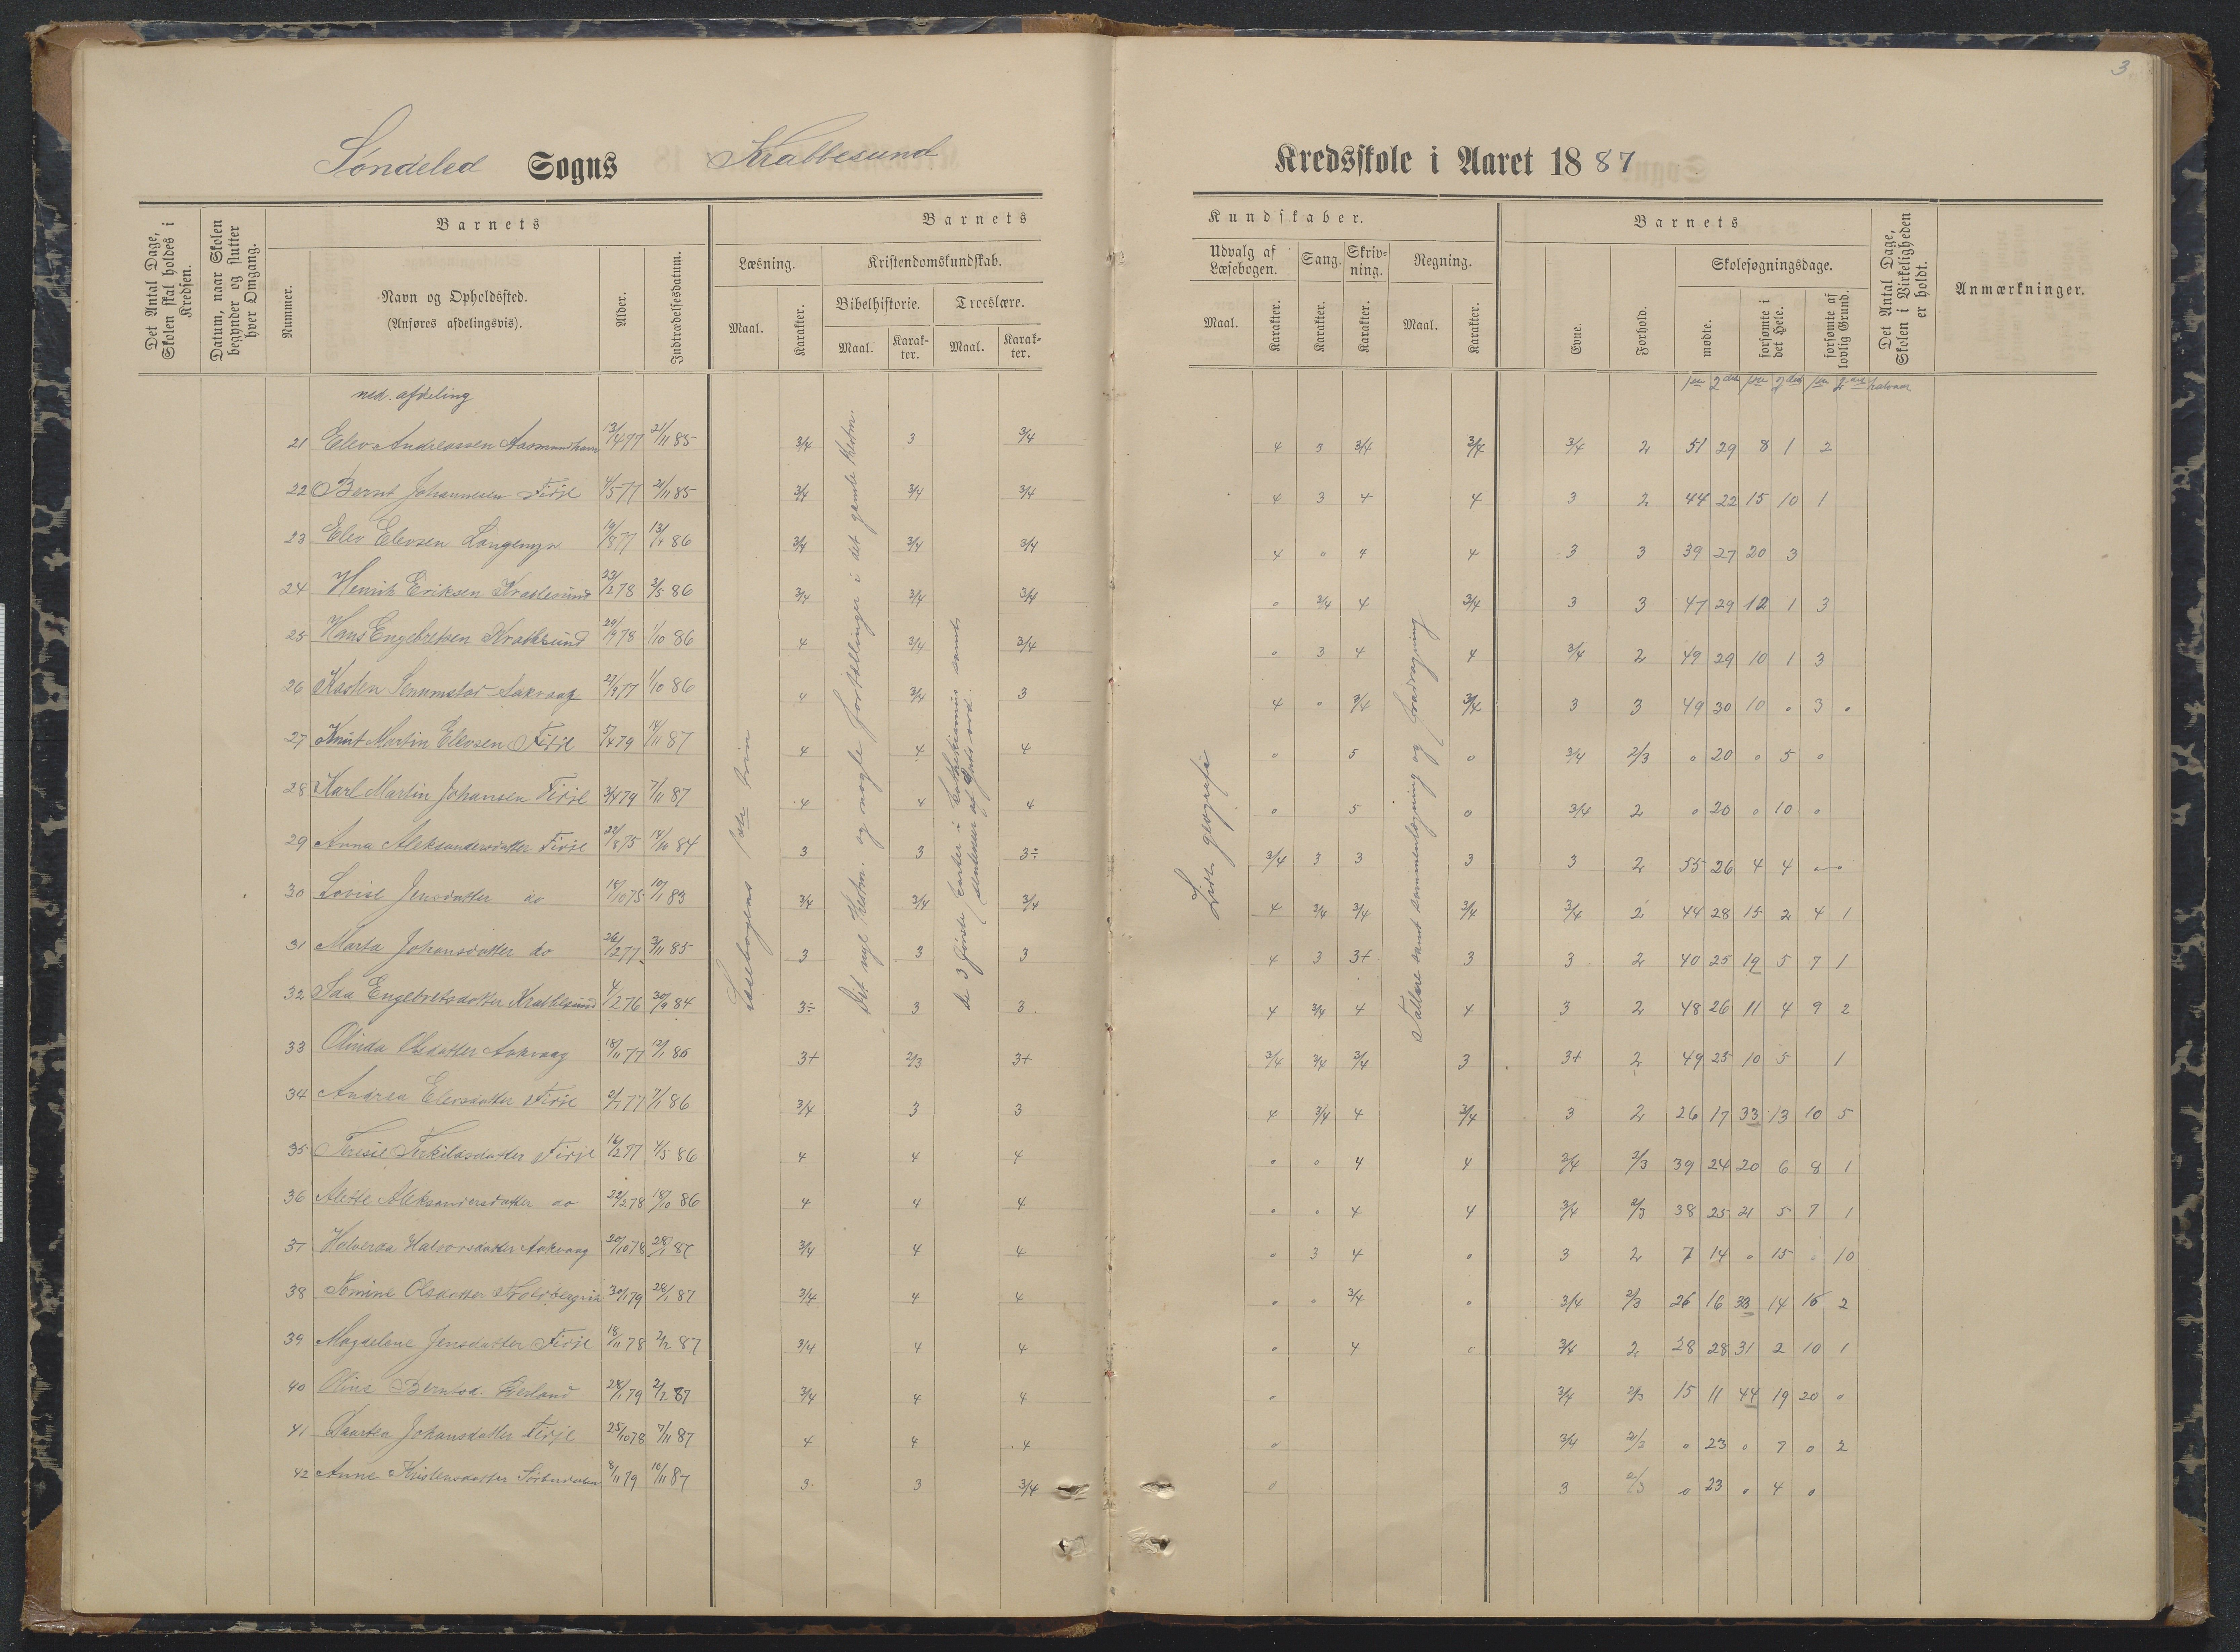 3
Søndeled Sogns Krabbesund Kredsskole i Aaret 1887
Det Antal Dage, Skolen skal holdes i Kredsen.
Datum, naar Skolen begynder og slutter hver Omgang.
Barnets
Nummer.
Navn og Opholdssted.
(Anføres afdelingsvis).
Alder.
Indtrædelsesdatum.
Barnets
Læsning.
Kristendomskundskab.
Bibelhistorie.
Troeslære.
Maal. Karakter. Maal. Karak-ter. Maal. Karak-ter.
Kundskaber.
Udvalg af Læsebogen.
Sang.
Skriv-ning.
Regning.
Maal. Karakter. Karakter. Karakter. Maal. Karakter.
Barnets
Evne.
Forhold.
Skolesøgningsdage.
mødte.
forsømte i det Hele.
forsømte af lovlig Grund.
Det Antal Dage, Skolen i Virkeligheden er holdt.
Anmærkninger.
ned. afdeling
Læsebogens 1ste trin
og nogle fortællinger i det gamle
de 3 første parter i
Lidt geografi
Tallære samt sammenlægning og fradragning
21 Elev Andreassen 13/4 77 21/11 85 3/4 3 3/4 4 3 3/4 3/4 3/4 2 51 29 8 1 2
22 Bernt Johannesen Firje 4/5 77 21/11 85 3/4 3/4 3/4 4 3 4 4 3 2 44 22 15 10 1
23 Elev Elevsen 19/8 77 86 3/4 3/4 3/4 4 o 4 4 3 3 39 27 20 3
24 Henrik Eriksen Krabbesund 23/2 78 3/5 86 3/4 3/4 3/4 o 3/4 4 3/4 3 3 47 29 12 1 3
25 Hans Engebretsen Krabbesund 24/9 78 1/10 86 4 3/4 3/4 o 3 4 4 3/4 2 49 29 10 1 3
26 Kasten Aakvaag 21/9 77 1/10 86 4 3/4 3 4 o 3/4 3/4 3 3 49 30 10 o 3 o
27 Knut Martin Elevsen Firje 5/4 79 14/11 87 4 4 4 o 5 o 3/4 2/3 o 20 o 5 o
28 Karl Martin Johansen Firje 3/4 79 7/11 87 4 4 4 o 5 o 3/4 2 o 20 o 10 o
29 Anna Aleksandersdatter Firje 22/8 75 14/10 84 3 3 3÷ 3/4 3 3 3 3 2 55 26 4 4
30 Lovise Jensdatter do 18/10 75 10/1 83 3/4 3/4 3/4 4 3/4 3/4 3/4 3/4 2 44 28 15 2 4 1
31 Marta Johansdatter do 26/2 77 3/11 85 3 3 3 4 3 3+ 3 3 2 40 25 19 5 7 1
32 Engebretsdatter Krabbesund 4/2 76 30/9 84 3÷ 3 3 4 3/4 4 4 3 2 48 26 11 4 9 2
33 Olinda Olsdatter Aakvaag 18/11 77 12/1 85 3+ 2/3 3+ 3/4 3/4 3/4 3 3+ 2 49 25 10 5 1
34 Andrea Elevsdatter Firje 2/7 77 7/1 86 3/4 3 3 4 3/4 4 3/4 3 2 26 17 33 13 10 5
35 Teresie Terkildsdatter Firje 16/2 77 4/5 86 4 4 4 o o 4 4 3/4 2/3 39 24 20 6 8 1
36 Aleksandersdatter do 22/2 78 18/10 86 4 4 4 o o 4 4 3/4 2/3 38 25 21 5 7 1
37 Halvorsdatter Aakvaag 20/10 78 28/1 87 3/4 4 4 o 3 4 o 3 2 7 14 o 15 o 10
38 Tomine Olsdatter 30/1 79 28/1 87 3/4 4 4 o o 3/4 o 3/4 2/3 26 16 33 14 15 2
39 Magdelene Jensdatter Firje 18/11 78 2/2 87 3/4 4 4 o 4 o 3/4 2 28 28 31 2 10 1
40 Oline Berntsd. 28/1 79 2/2 87 3/4 4 4 o 3/4 2/3 15 11 44 19 20 o
41 Johansdatter Firje 25/10 78 7/11 87 4 4 4 o 3/4 2/3 o 23 o 7 o 2
42 Anne Kristensdatter 8/11 79 10/11 87 3 3 3/4 o 3 2/3 o 23 o 4 o